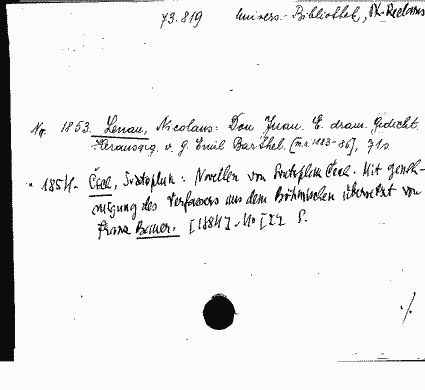 73.819 Univers.-Bibliothek, Ph. Reclams
Nr. 1853. Lenau, Nicolaus: Don Juan. E. dram. Gedicht.
Herausgg. v. G. Emil Barthel. 71 s
1854. Čech, Svatopluk: Novellen von Svatopluk Čech. Mit geneh-
migung des Verfassers aus dem Böhmischen übersetzt von
Franz Bauer. [1884] S.
./.